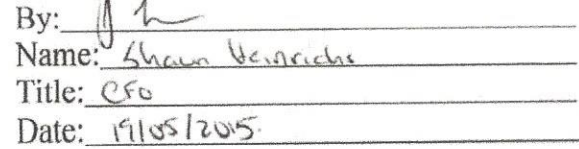 By:
Name: Shaun Heinrichs
Title: CFO
Date: 19/05/2015